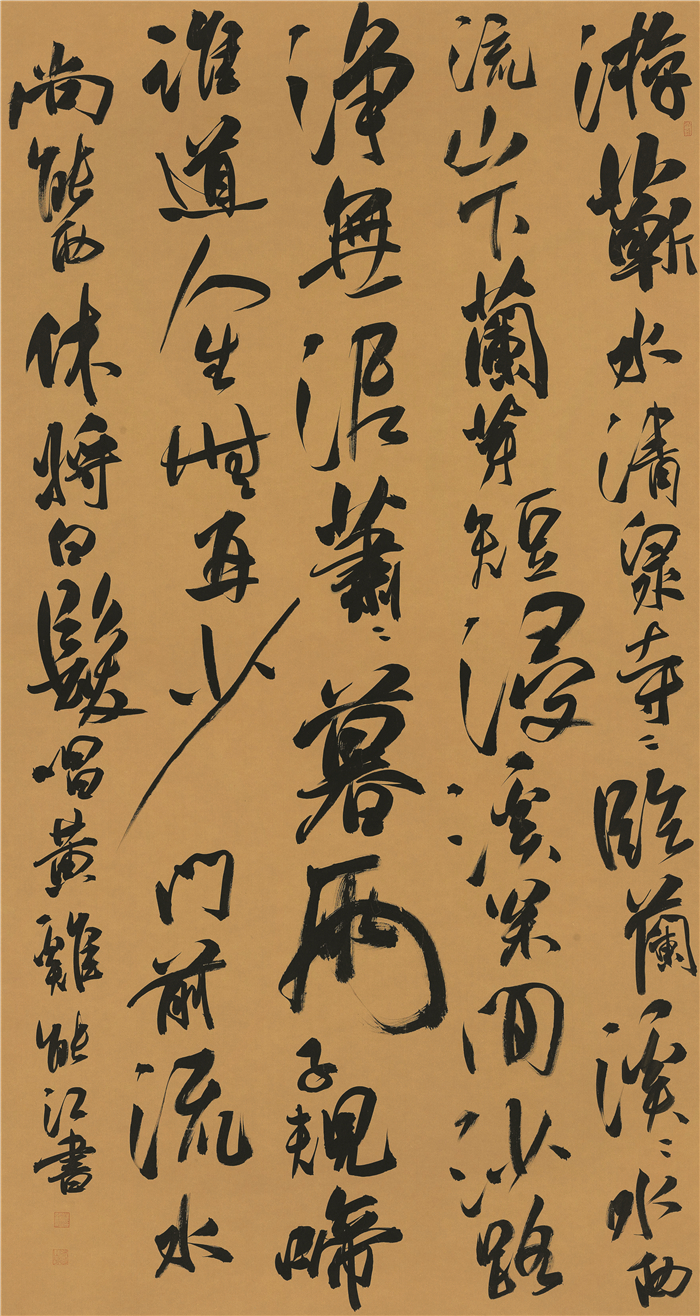 游蘄水清泉寺〻臨蘭溪〻水西
流山下蘭芽短浸溪松間沙路
淨無泥蕭〻暮雨子規啼
誰道人生無再少門前流水
尚能西休將白髮唱黃雞能江書